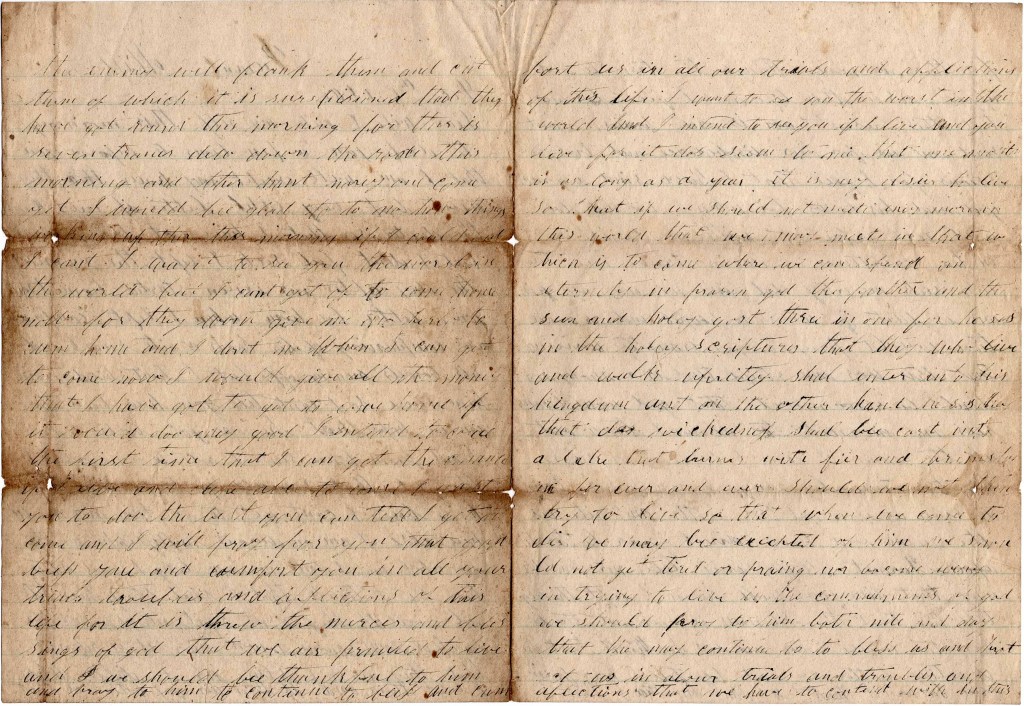 the enemy will flank them and cut
them of which it is surposined that they
have got round this morning for ther is
seven trains down the rode this
morning and ther haint nary one come
yet I would bee glad to no how things
this morning if I could
I cant I want to see you the worst in
the world but I cant get of to come home
now for they wont give me to
cum home and I dont no when I can get
to come now I would give all the money
that I have got to get to come home if
it would doo eny good I intend to
the first time that I can get the chance
and want
you to doo the best you can tell I get to
come and I will pray for you that god
bless you and comfort you in all your
trials troubles and aflictions of this
life for it is threw the mercies and bles
sings of god that we air permited to live
and we should bee thankful to him
and pray to him to continue to bless and com
fort us in all our trials and aflictions
of this life I want to see you the worst in the
world and I intend to see you if I live and you
live for it dos seem to me that one month
is as long as a year it is my desier to live
so that if we should not meet eny more in
this world that we may meet in that w
hich is to come where we can spend an
eternity in prasen god the farther and the
sun and holey gost three in one for he ses
in the holey scriptures that they who live
and walk upritly shal enter into his
kingdom and on the other hand he ses the
that dos wickedness shal bee cast into
a lake that burns with fier and brimsto
ne for ever and ever should we not then
try to live so that when we come to
die we may bee excepted of him we shou
ld not get tired of praing nor become weary
in trying to live in the commandments of god
we should pray to him both nite and day
that he may continue to to bless us and
us in all our trials and troubles and
aflictions that we have to contend with in this